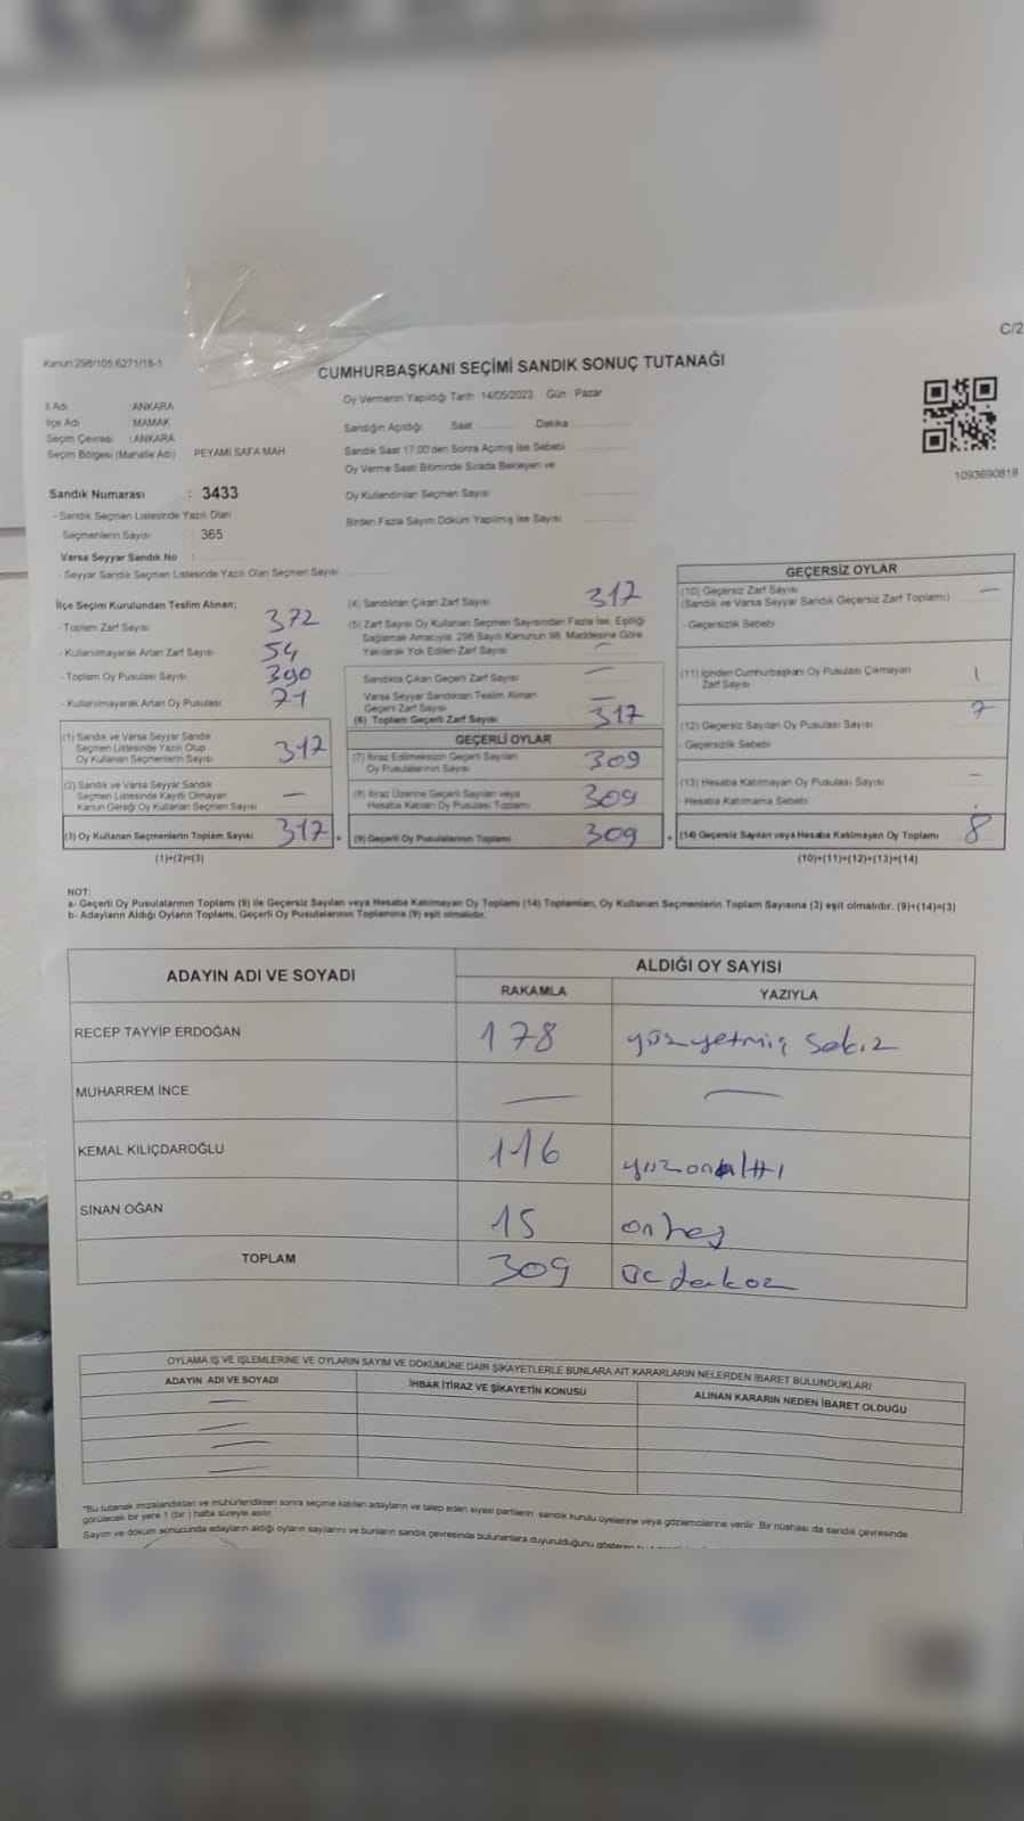 C/2
Kanun:298/105 6271/18-1
CUMHURBAŞKANI SEÇİMİ SANDIK SONUÇ TUTANAĞI
Oy Vermenin Yapıldığı Tarih 14/05/2023 Gün : Pazar
İl Adı : ANKARA
İlçe Adı : MAMAK
Seçim Çevresi : ANKARA
Seçim Bölgesi (Mahalle Adı) PEYAMİ SAFA MAH
Sandık Numarası : 3433
- Sandık Seçmen Listesinde Yazılı Olan
Seçmenlerin Sayısı : 365
Varsa Seyyar Sandık No :
- Seyyar Sandık Seçmen Listesinde Yazılı Olan Seçmen Sayısı
Sandığın Açıldığı: Saat Dakika
Sandık Saat 17:00'den Sonra Açılmış İse Sebebi
Oy Verme Saati Bitiminde Sırada Bekleyen ve
Oy Kullandırılan Seçmen Sayısı
Birden Fazla Sayım Döküm Yapılmış İse Sayısı
1093690818
İlçe Seçim Kurulundan Teslim Alınan;
- Toplam Zarf Sayısı 372
- Kullanılmayarak Artan Zarf Sayısı 54
- Toplam Oy Pusulası Sayısı 390
- Kullanılmayarak Artan Oy Pusulası 71
(1) Sandık ve Varsa Seyyar Sandık
Seçmen Listesinde Yazılı Olup
Oy Kullanan Seçmenlerin Sayısı 317
(2) Sandık ve Varsa Seyyar Sandık
Seçmen Listesinde Kayıtlı Olmayan
Kanun Gereği Oy Kullanan Seçmen Sayısı —
(3) Oy Kullanan Seçmenlerin Toplam Sayısı 317
(1)+(2)=(3)
(4) Sandıktan Çıkan Zarf Sayısı 317
(5) Zarf Sayısı Oy Kullanan Seçmen Sayısından Fazla İse, Eşitliği
Sağlamak Amacıyla, 298 Sayılı Kanunun 98. Maddesine Göre
Yakılarak Yok Edilen Zarf Sayısı —
Sandıkta Çıkan Geçerli Zarf Sayısı —
Varsa Seyyar Sandıktan Teslim Alınan
Geçerli Zarf Sayısı —
(6) Toplam Geçerli Zarf Sayısı 317
GEÇERLİ OYLAR
(7) İtiraz Edilmeksizin Geçerli Sayılan
Oy Pusulalarının Sayısı 309
(8) İtiraz Üzerine Geçerli Sayılan veya
Hesaba Katılan Oy Pusulası Toplamı 309
(9) Geçerli Oy Pusulalarının Toplamı 309
GEÇERSİZ OYLAR
(10) Geçersiz Zarf Sayısı —
(Sandık ve Varsa Seyyar Sandık Geçersiz Zarf Toplamı)
- Geçersizlik Sebebi
(11) İçinden Cumhurbaşkanı Oy Pusulası Çıkmayan
Zarf Sayısı 1
(12) Geçersiz Sayılan Oy Pusulası Sayısı 7
- Geçersizlik Sebebi
(13) Hesaba Katılmayan Oy Pusulası Sayısı —
- Hesaba Katılmama Sebebi
(14) Geçersiz Sayılan veya Hesaba Katılmayan Oy Toplamı 8
(10)+(11)+(12)+(13)=(14)
NOT:
a- Geçerli Oy Pusulalarının Toplamı (9) ile Geçersiz Sayılan veya Hesaba Katılmayan Oy Toplamı (14) Toplamları, Oy Kullanan Seçmenlerin Toplam Sayısına (3) eşit olmalıdır. (9)+(14)=(3)
b- Adayların Aldığı Oyların Toplamı, Geçerli Oy Pusulalarının Toplamına (9) eşit olmalıdır.
ADAYIN ADI VE SOYADI ALDIĞI OY SAYISI
RAKAMLA YAZIYLA
RECEP TAYYİP ERDOĞAN 178 yüzyetmiş sekiz
MUHARREM İNCE — —
KEMAL KILIÇDAROĞLU 116 yüzonaltı
SİNAN OĞAN 15 onbeş
TOPLAM 309 üçdokuz
OYLAMA İŞ VE İŞLEMLERİNE VE OYLARIN SAYIM VE DÖKÜMÜNE DAİR ŞİKAYETLERLE BUNLARA AİT KARARLARIN NELERDEN İBARET BULUNDUKLARI
ADAYIN ADI VE SOYADI İHBAR İTİRAZ VE ŞİKAYETİN KONUSU ALINAN KARARIN NEDEN İBARET OLDUĞU
—
—
—
—
"Bu tutanak imzalandıktan ve mühürlendikten sonra seçime katılan adayların ve talep eden siyasi partilerin sandık kurulu üyelerine veya gözlemcilerine verilir. Bir nüshası da sandık çevresinde
görülecek bir yere 1 (bir) hafta süreyle asılır.
Sayım ve döküm sonucunda adayların aldığı oyların sayılarını ve bunların sandık çevresinde bulunanlara duyurulduğunu gösteren